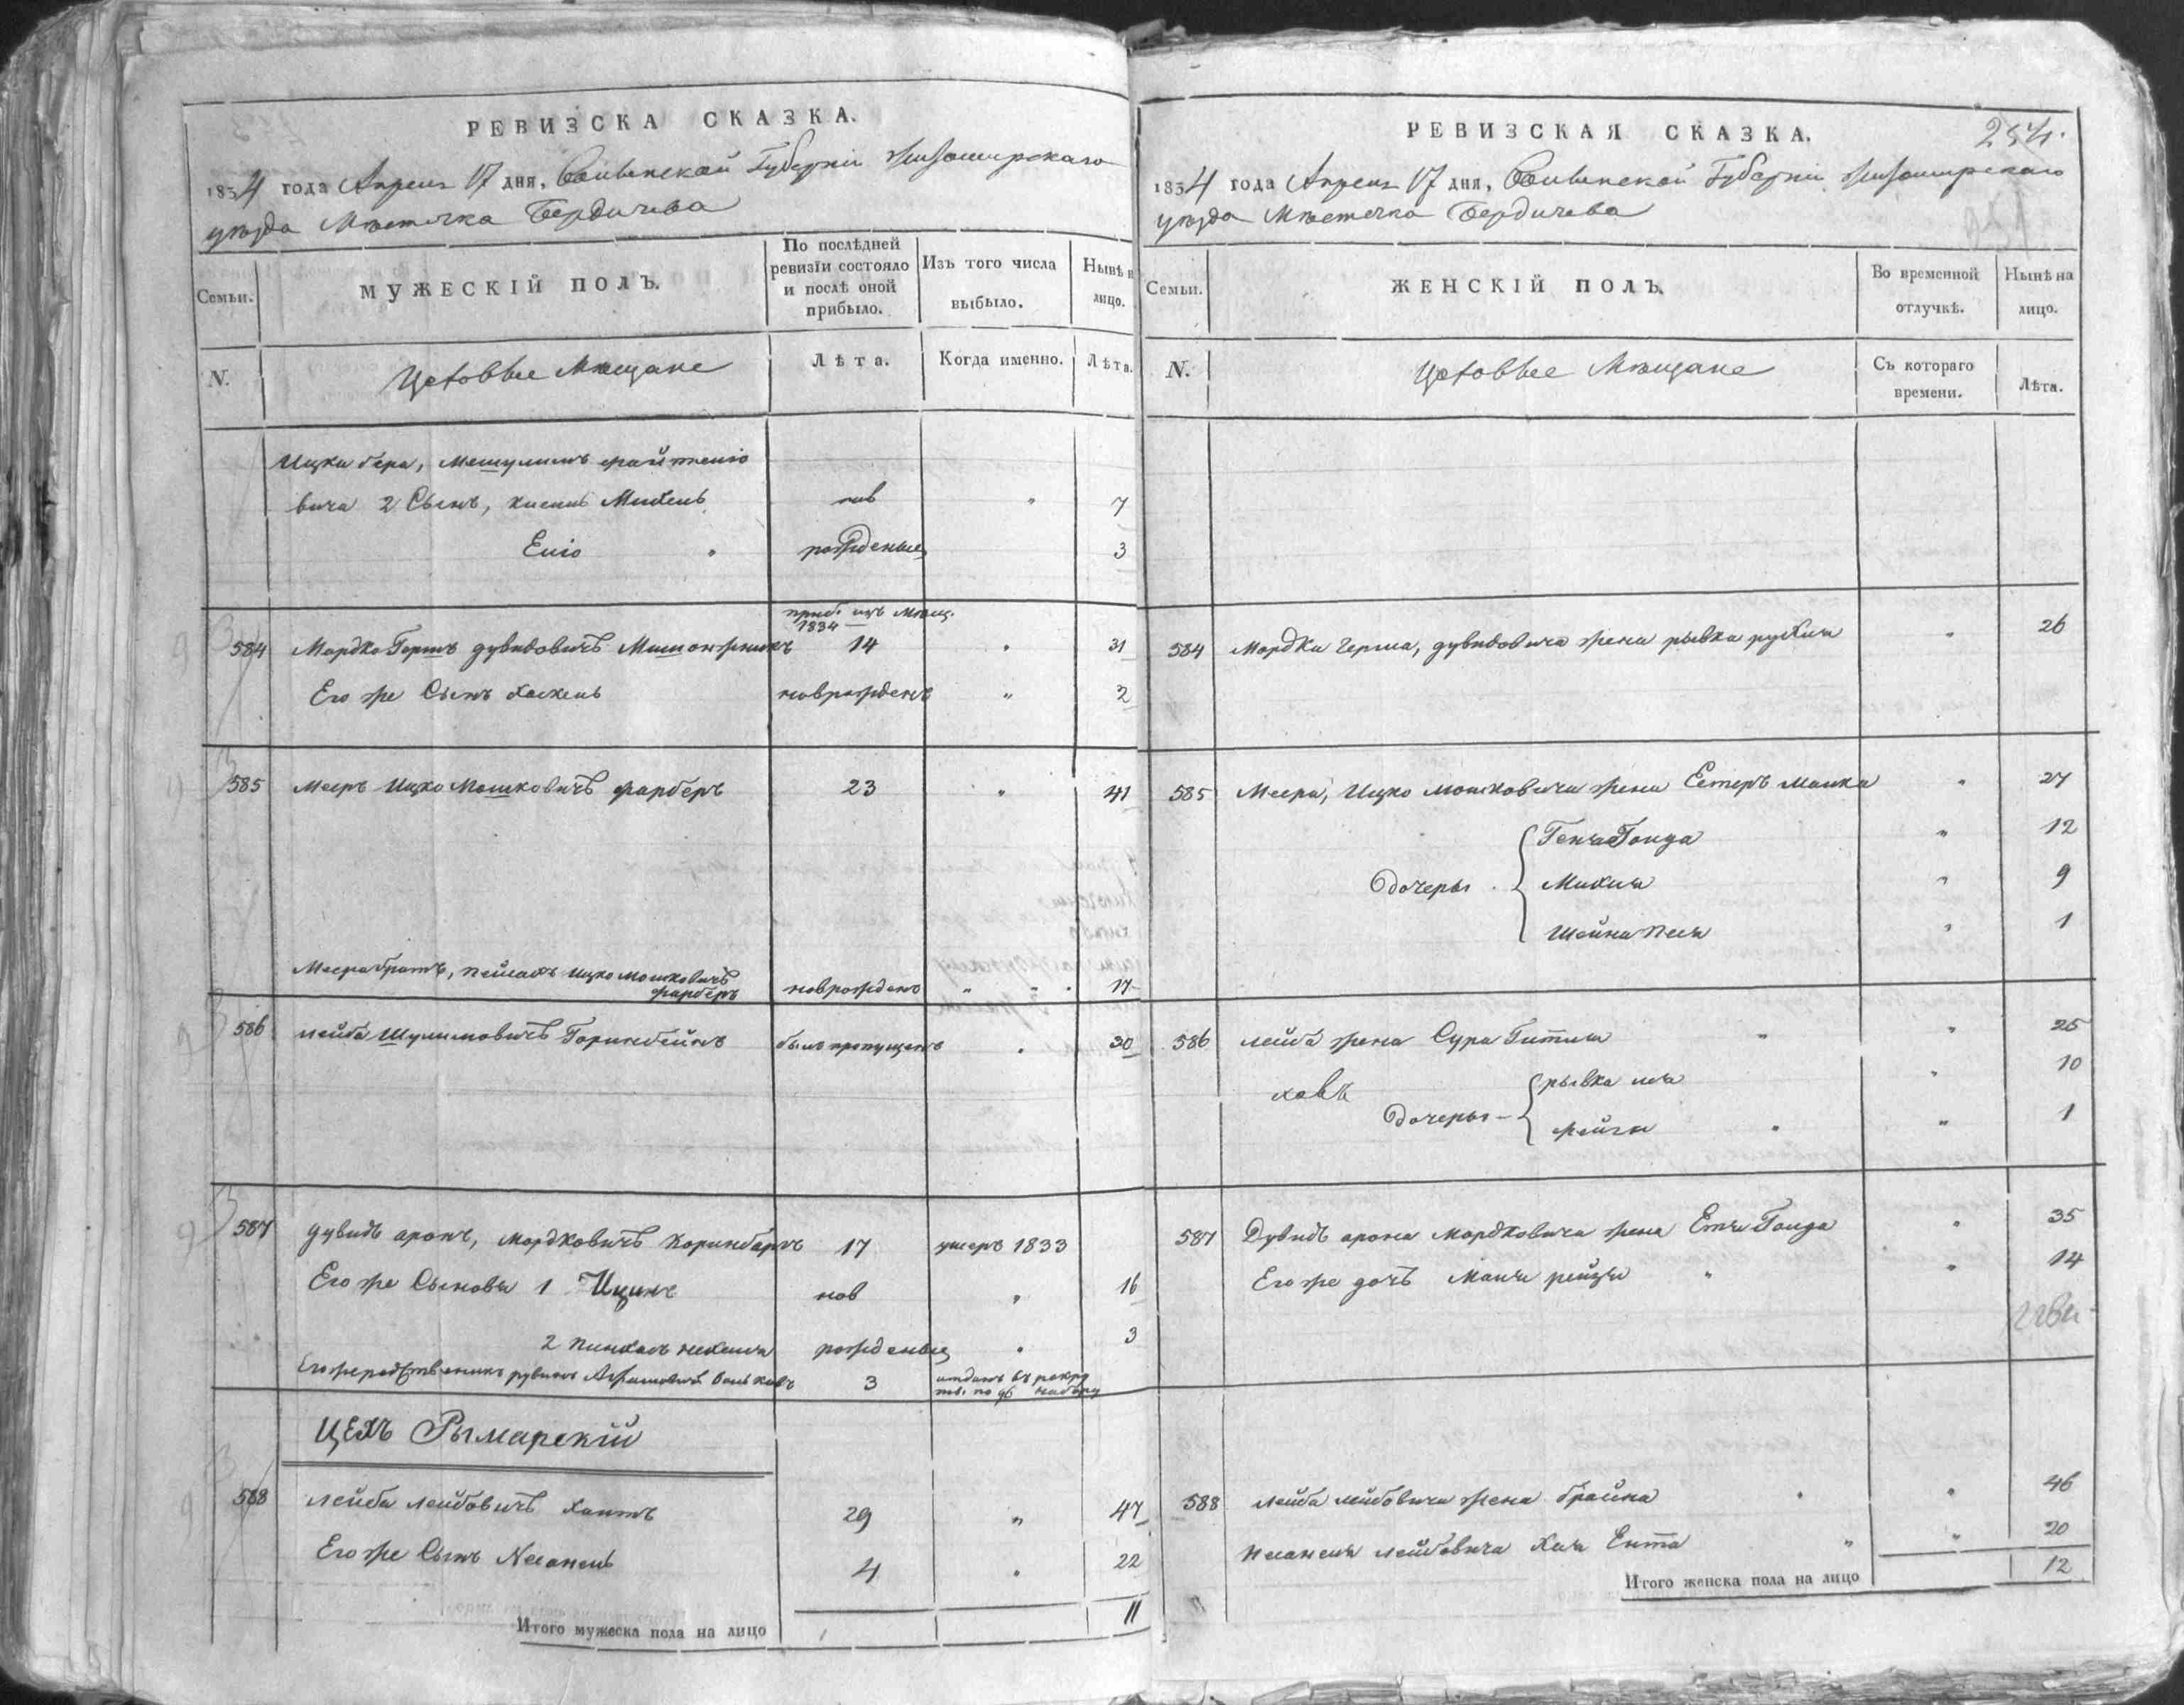 РЕВИЗСКА СКАЗКА.
1834 года Апреля 17 дня, Волынской Губерніи Житомирскаго
уезда Мѣстечка Бердичева
Семьи.
МУЖЕСКІЙ ПОЛЪ.
По послѣдней
ревизіи состояло
и послѣ оной
прибыло.
Изъ того числа
выбыло.
Нынѣ н
лицо.
N.
Цеховые Мѣщане
Лѣта.
Когда именно.
Лѣта.
Ицки бера, Мешулимъ
вича 2 Сынъ, нов " 7
рожденыи 3
приб. изъ Мѣщ.
1834
584 Мордко Гершъ дувидовичъ 14 " 31
Его же Сынъ Хаскель новрожденъ " 2
585 Мееръ Ицко Мошковичъ фарберъ 23 " 41
Меера братъ, пейсахъ Ицко мошковичъ
фарберъ новрожденъ " " 17
586 лейба Шулимовичъ былъ пропущенъ " 30
587 дувидъ аронъ, мордковичъ 17 умеръ 1833
Его же Сыновья 1 Ицикъ нов " 16
2 пинхасъ рожденыи " 3
Его же родственникъ рувинъ 3 отданъ въ рекру
ты по 96 набору
ЦЕХЪ Рымарскій
588 лейба лейбовичъ 29 " 47
Его же Сынъ 4 " 22
Итого мужеска пола на лицо 11
РЕВИЗСКАЯ СКАЗКА. 254.
1834 года Апреля 17 дня, Волынской Губерніи Житомирскаго
уезда Мѣстечка Бердичева
Семьи.
ЖЕНСКІЙ ПОЛЪ.
Во временной
отлучкѣ.
Нынѣ на
лицо.
N.
Цеховые Мѣщане
Съ котораго
времени.
Лѣта.
584 Мордки Герша, дувидовича жена рывка рухля " 26
585 Меера, Ицко мошковича жена Естеръ Малка " 27
Генча Голда " 12
дочеры Михля " 9
Шейна песя " 1
586 лейба жена Сура Гитля " " 25
рывка лея " 10
дочеры фейга " " 1
587 Дувидъ арона мордковича жена Голда " 35
Его же дочъ " " 14
588 лейба лейбовича жена брайна " " 46
лейбовича Хая Ента " " 20
Итого женска пола на лицо 12